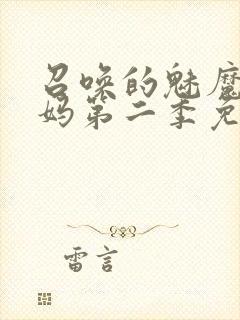 召唤的魅魔
妈第二季免
雷言